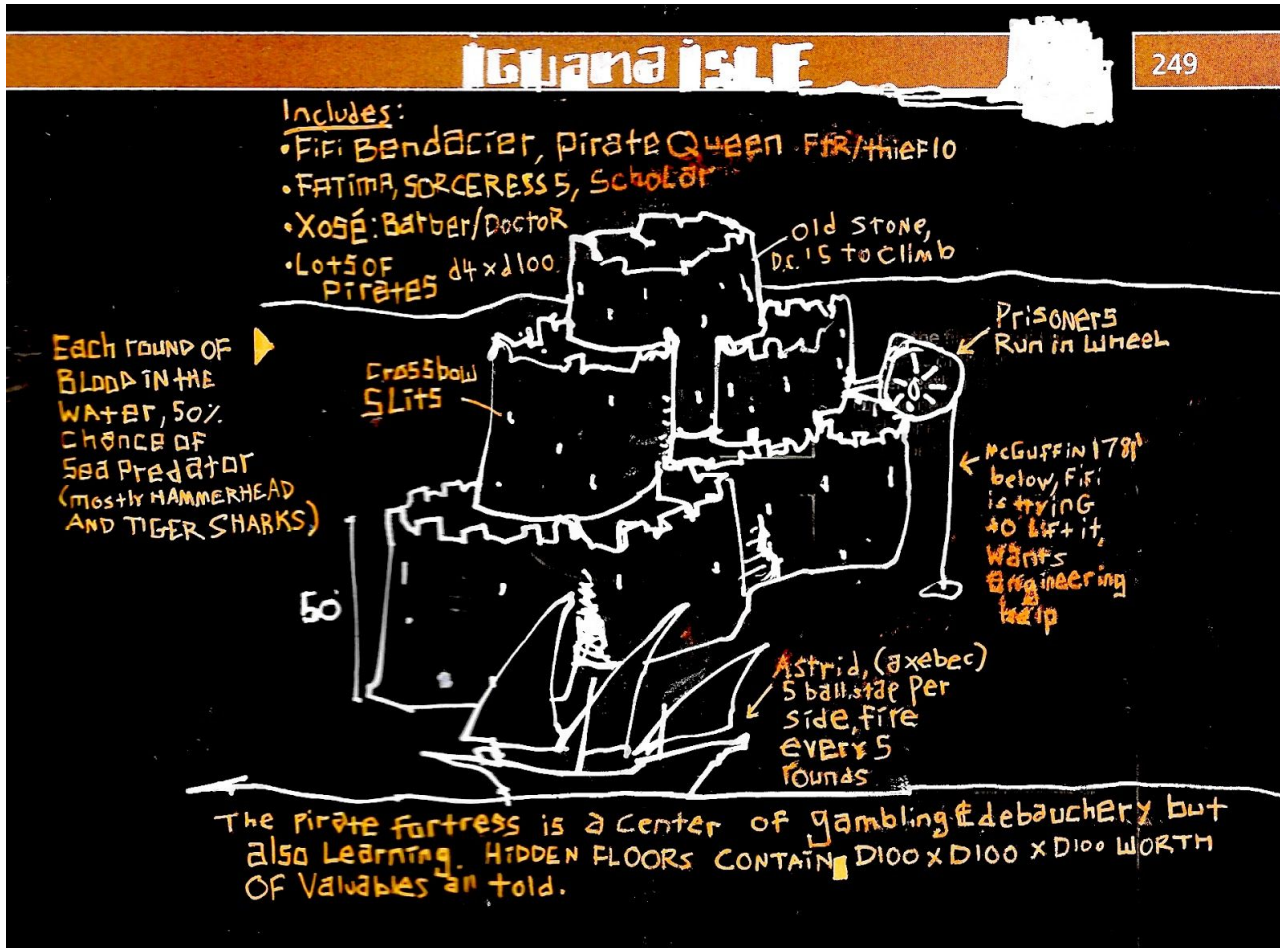 iGuana iSLE
249
Includes:
•FiFi Bendacier, Pirate Queen FtR/thieF10
•FATIMA, SORCERESS 5, Scholar
•Xosé: Barber/DoctoR
•Lots OF d4 x d100
Pirates
Old STONE,
D.C. 15 to Climb
Prisoners
Run in Wheel
Each round OF
BLOOD IN THE
WATER, 50%
Chance OF
Sea Predator
(mostly HAMMERHEAD
AND TIGER SHARKS)
Crossbow
SLits
McGuffin 178'
below, Fifi
is trying
to Lift it,
wants
Engineering
help
50'
Astrid, (axebec)
5 ballistae Per
side, fire
every 5
rounds
The Pirate fortress is a center of gambling & debauchery but
also Learning. HIDDEN FLOORS CONTAIN D100 x D100 x D100 WORTH
OF Valuables all told.